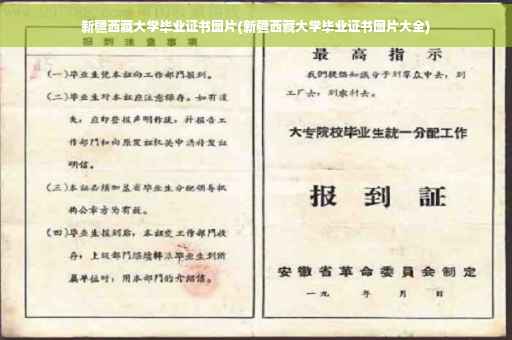 新疆西藏大学毕业证书图片(新疆西藏大学毕业证书图片大全)
报到注意事项
(一)毕业生凭本证向工作部门报到。
(二)毕业生对本证应注意保存。如有遗
失，应即登报声明作废，并报告工
作部门和向原发证机关申请补发证
明信。
(三)本证必须加盖省毕业生分配领导机
构公章方为有效。
(四)毕业生报到后，本证交工作部门收
存；上级部门继续转派毕业生到所
属单位时，用本部门的介绍信。
最高指示
我们提倡知识分子到群众中去，到
工厂去，到农村去。
大专院校毕业生统一分配工作
报到証
安徽省革命委员会制定
一九 年 月 日